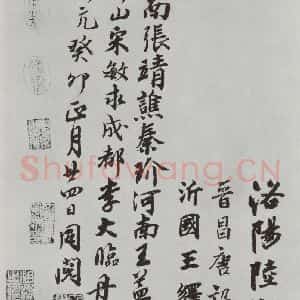 洛陽陸
晉昌唐
沂國王繹
南張靖譙秦玠河南王益
山宋敏求成都李大臨丹
元癸卯正月廿四日同閱
Shufawang.CN